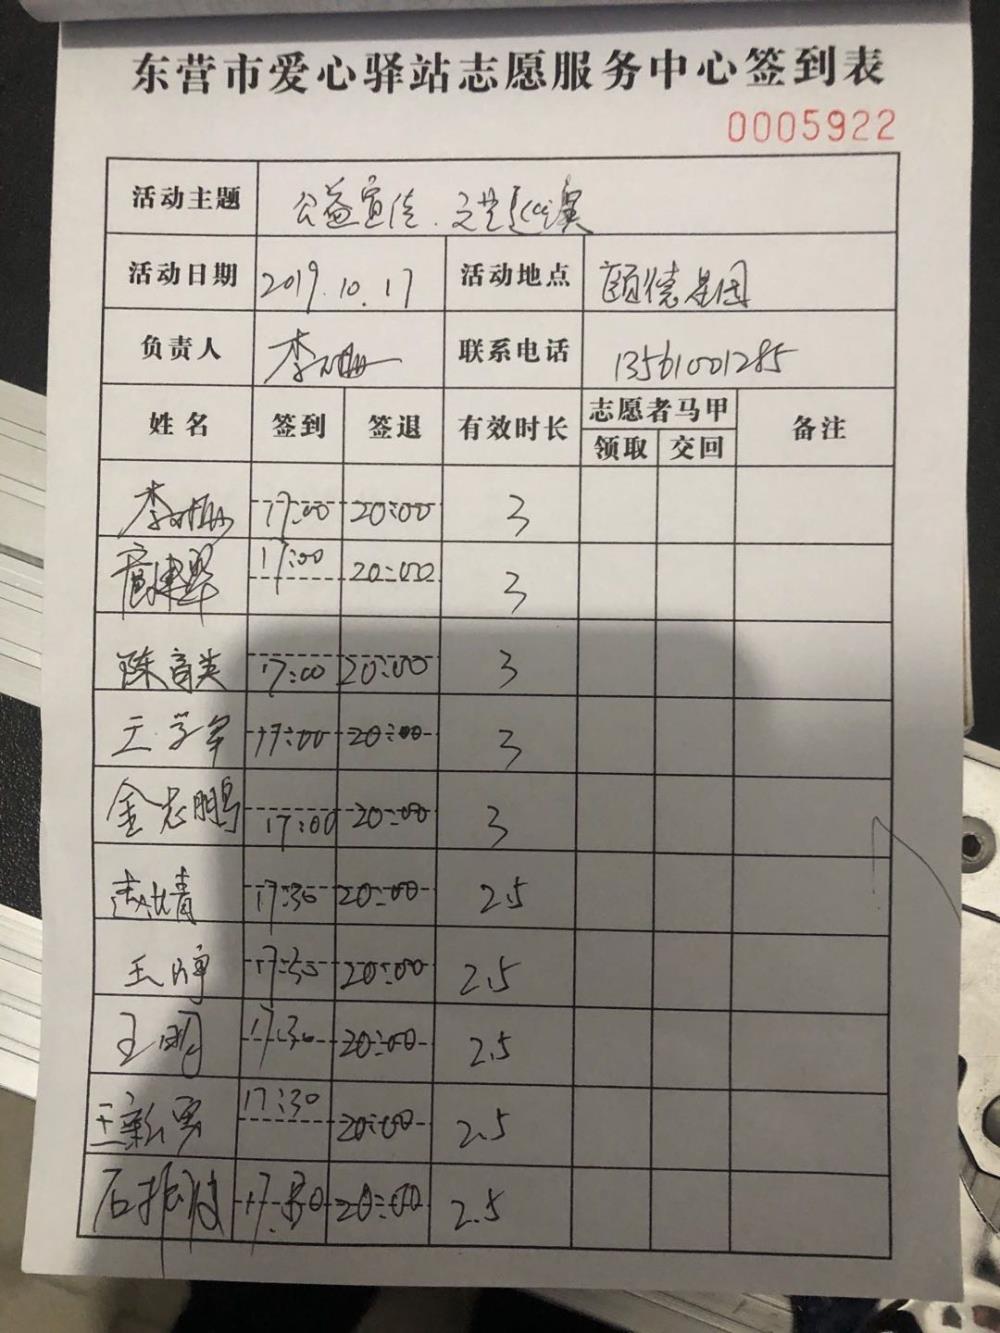 东营市爱心驿站志愿服务中心签到表
0005922
活动主题 公益宣传.文艺
活动日期 2019.10.17 活动地点 颐德
负责人 李 联系电话 13561001285
姓名 签到 签退 有效时长 志愿者马甲 备注
领取 交回
李 17:00 20:00 3
17:00 20:00 3
陈育英 17:00 20:00 3
王学军 17:00 20:00 3
金志鹏 17:00 20:00 3
17:30 20:00 2.5
王婷 17:30 20:00 2.5
王明 17:30 20:00 2.5
王新 17:30 20:00 2.5
石振波 17:30 20:00 2.5